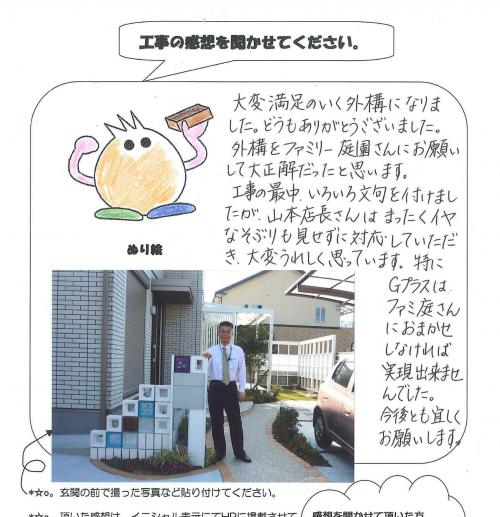 工事の感想を聞かせてください。
大変満足のいく外構になりま
した。どうもありがとうございました。
外構をファミリー庭園さんにお願い
して大正解だったと思います。
工事の最中、いろいろ文句を付けまし
たが、山本店長さんは まったくイヤ
なそぶりも見せずに対応していただ
き、大変うれしく思っています。特に
Gプラスは、
ファミ庭さん
におまかせ
しなければ
実現出来ませ
んでした。
今後とも宜しく
お願いします。
ぬり絵
*☆○。玄関の前で撮った写真など貼り付けてください。
*☆○。頂いた感想は、イニシャル表示にてHPに掲載させて
感想を聞かせて頂いた方